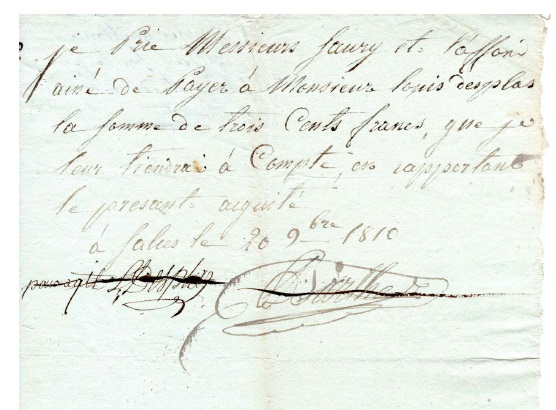 je Prie Messieurs faury et
ainé de Payer à Monsieur louis desplas
la somme de trois Cents francs, que je
leur tiendrai à Compte, en rapportant
le presant aiquité
à salies le 20 9bre 1810
pour aqit L. Desplas